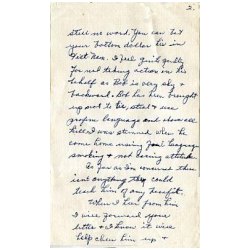 2.
still no word. You can bet
your bottom dollar he is in
I feel quite guilty
for not taking action on his
behalf as Bob is very shy &
backward. Bob has been brought
up not to lie, steal & use
profane language and above all
I was stunned when he
come home using foul language
smoking & not caring
As far as I'm concerned there
isn't anything they could
teach him of any benefit.
When I hear from him
I will forward your
letter & I know it will
help cheer him up &